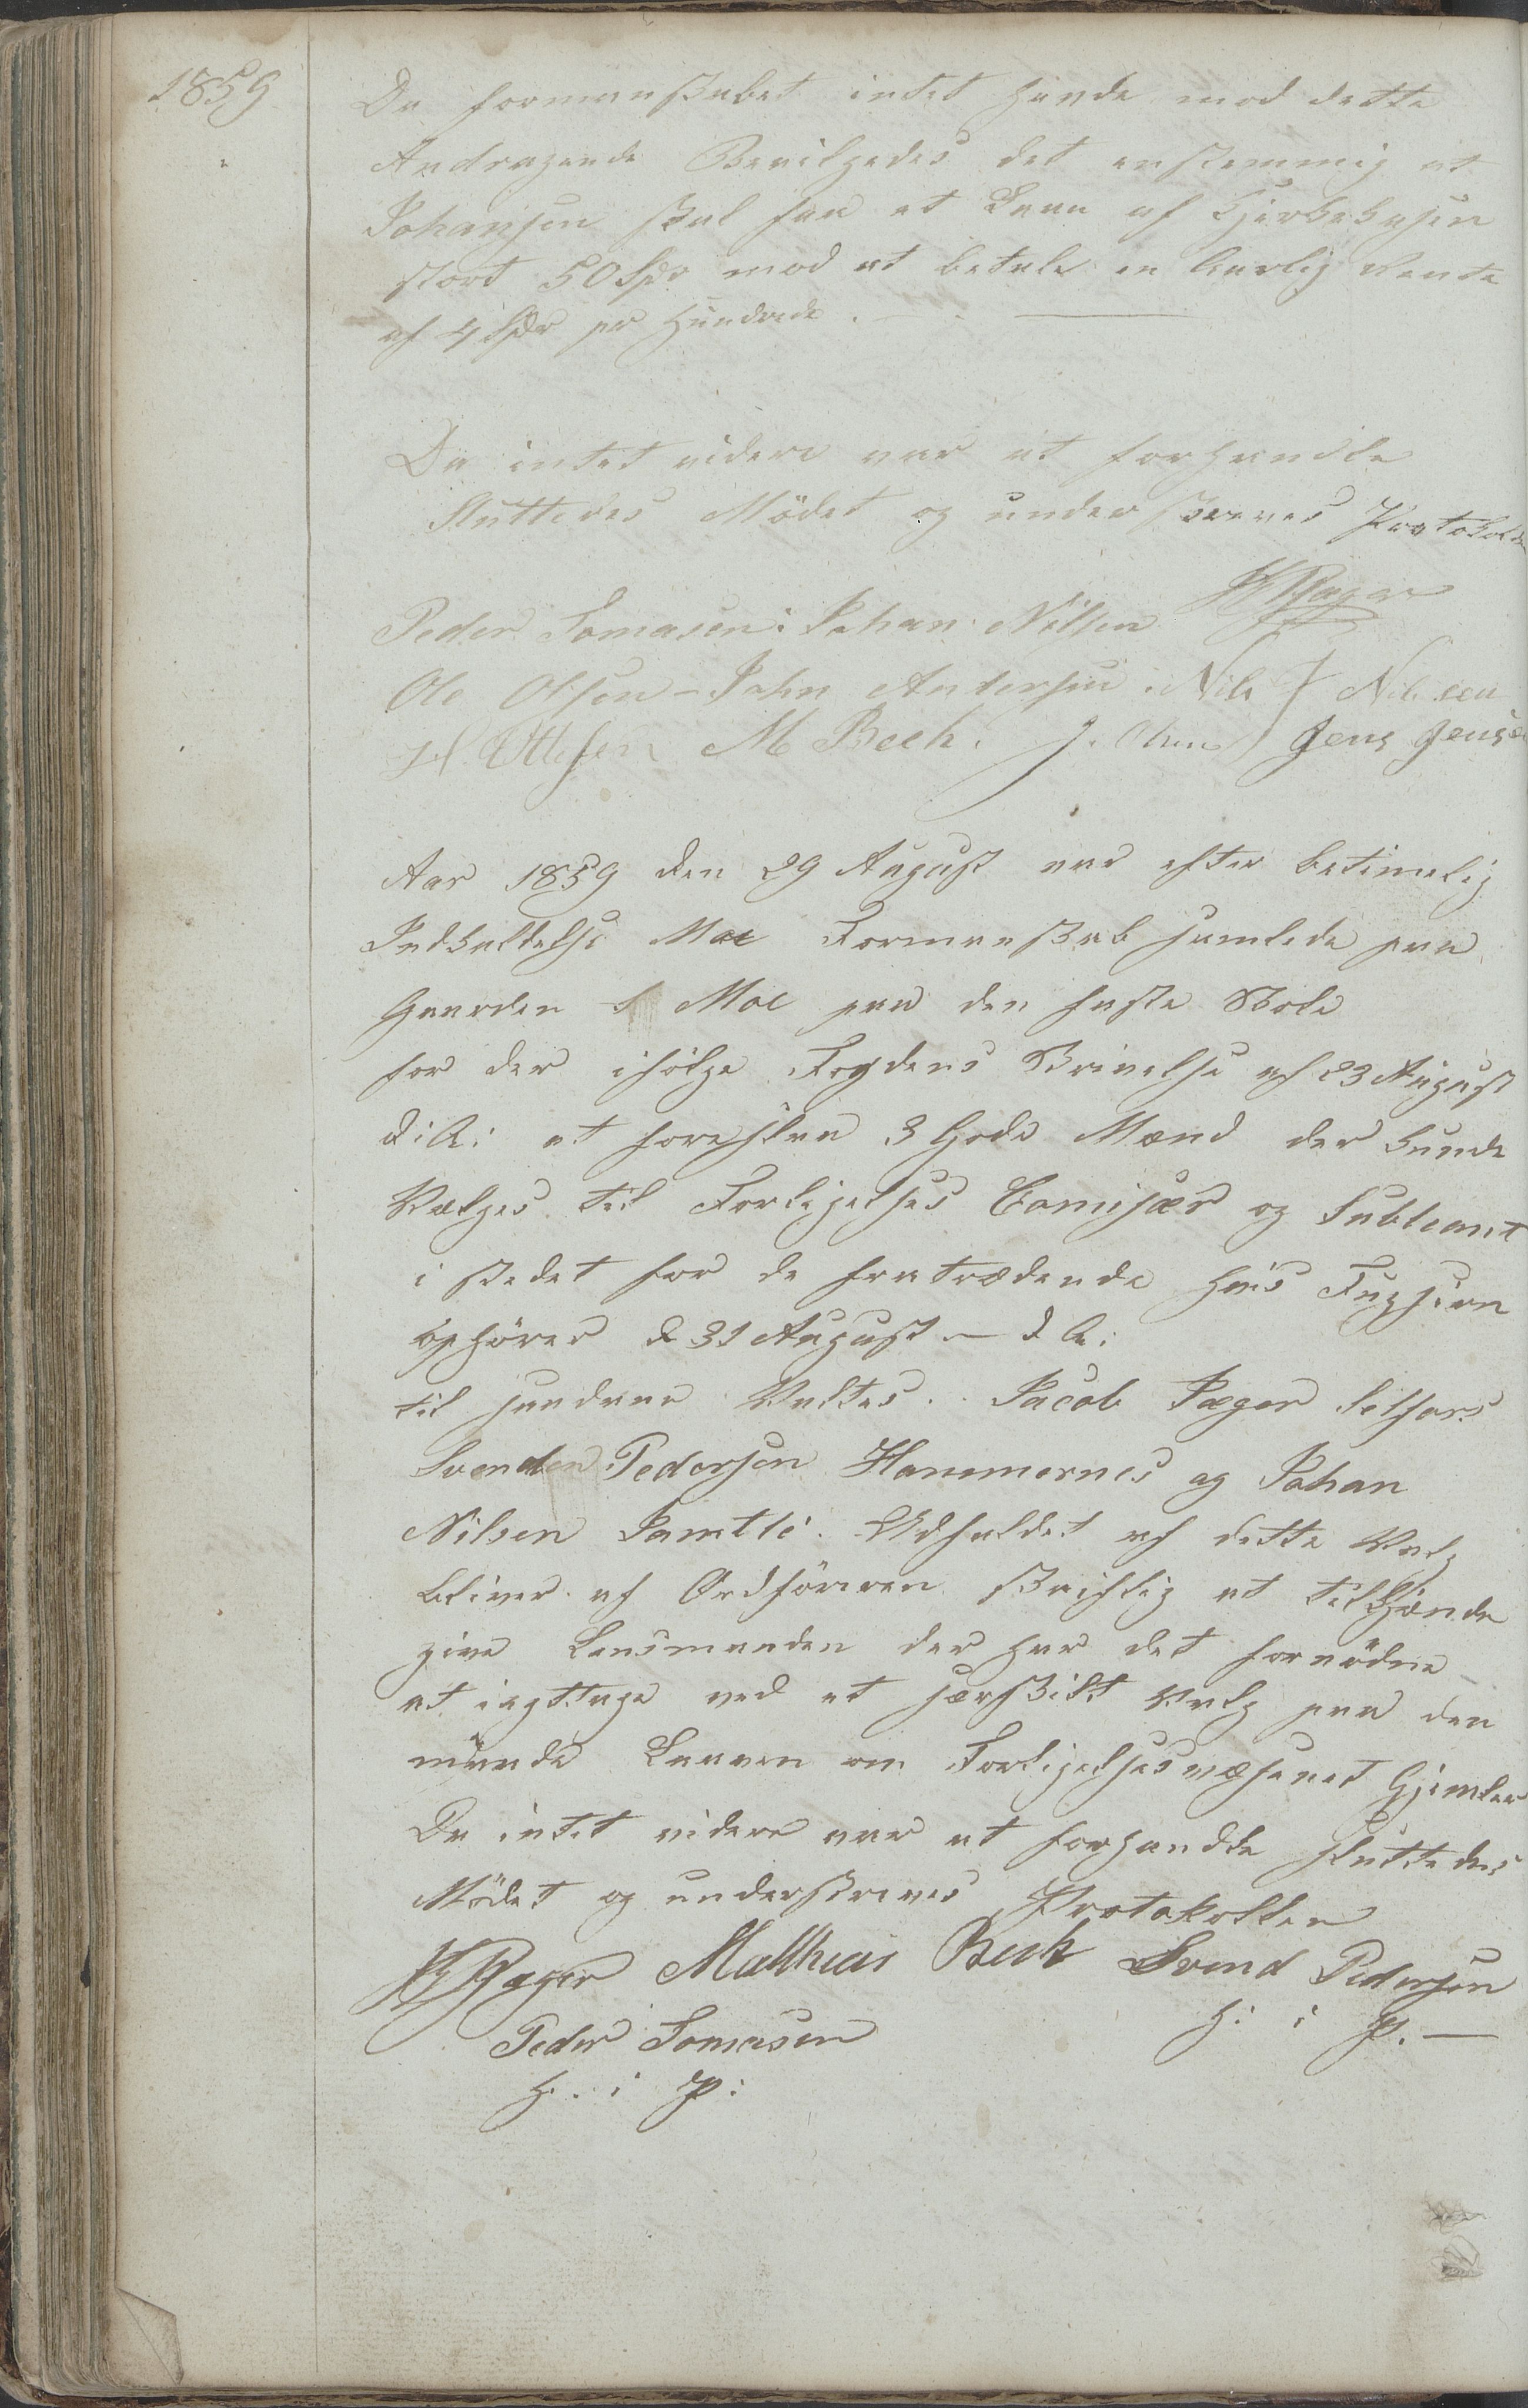 1859
Da formanskabet intet havde mod dette
Andragende Bevilgedes det enstemmig at
Johansen skal faa et Laan af Kirkekasen
stort 50 Spd mod at betale en Aarlig Rente
af 4 Spd pr Hundrede. —
Da intet videre var at forhandle
Sluttedes Mödet og underskreves Protokollen
Peder Tomasen: Johan Nilsen
Ole Olsen – John Andersen: Nils Nilssen
H. Ottesen M Bech. J. Jens Jensen
Aar 1859 den 29 August var efter betimelig
Indkaldelse Moe Formanskab samlede paa
Gaarden Moe paa den faste Skole
for der ifölge Fogdens Skrivelse af 23 August
d: A: at foreslaa 3 Gode Mænd der kunde
Vælges til Forligelses Comisær og Subleant
i stedet for de fratrædende hvis Fugsion
ophörer d 31 August – d A:
til saadane Valtes. Jacob Jæger Selfors
Svend Pedersen Hammernes og Johan
Nilsen Jamtlé. Udfaldet af dette Valg
bliver af Ordföreren skriftlig at tilkjænde
give Lensmanden der har det fornödne
at iagttage ved et særskilt Valg paa den
maade Loven om Forligelsesvæsenet Gjemler
Da intet videre var at forhandle sluttedes
Mödet og underskreves Protokollen
Jæger Mathias Bech Svend Pedersen
Peder Tomasen h. i P. —
h. i P: